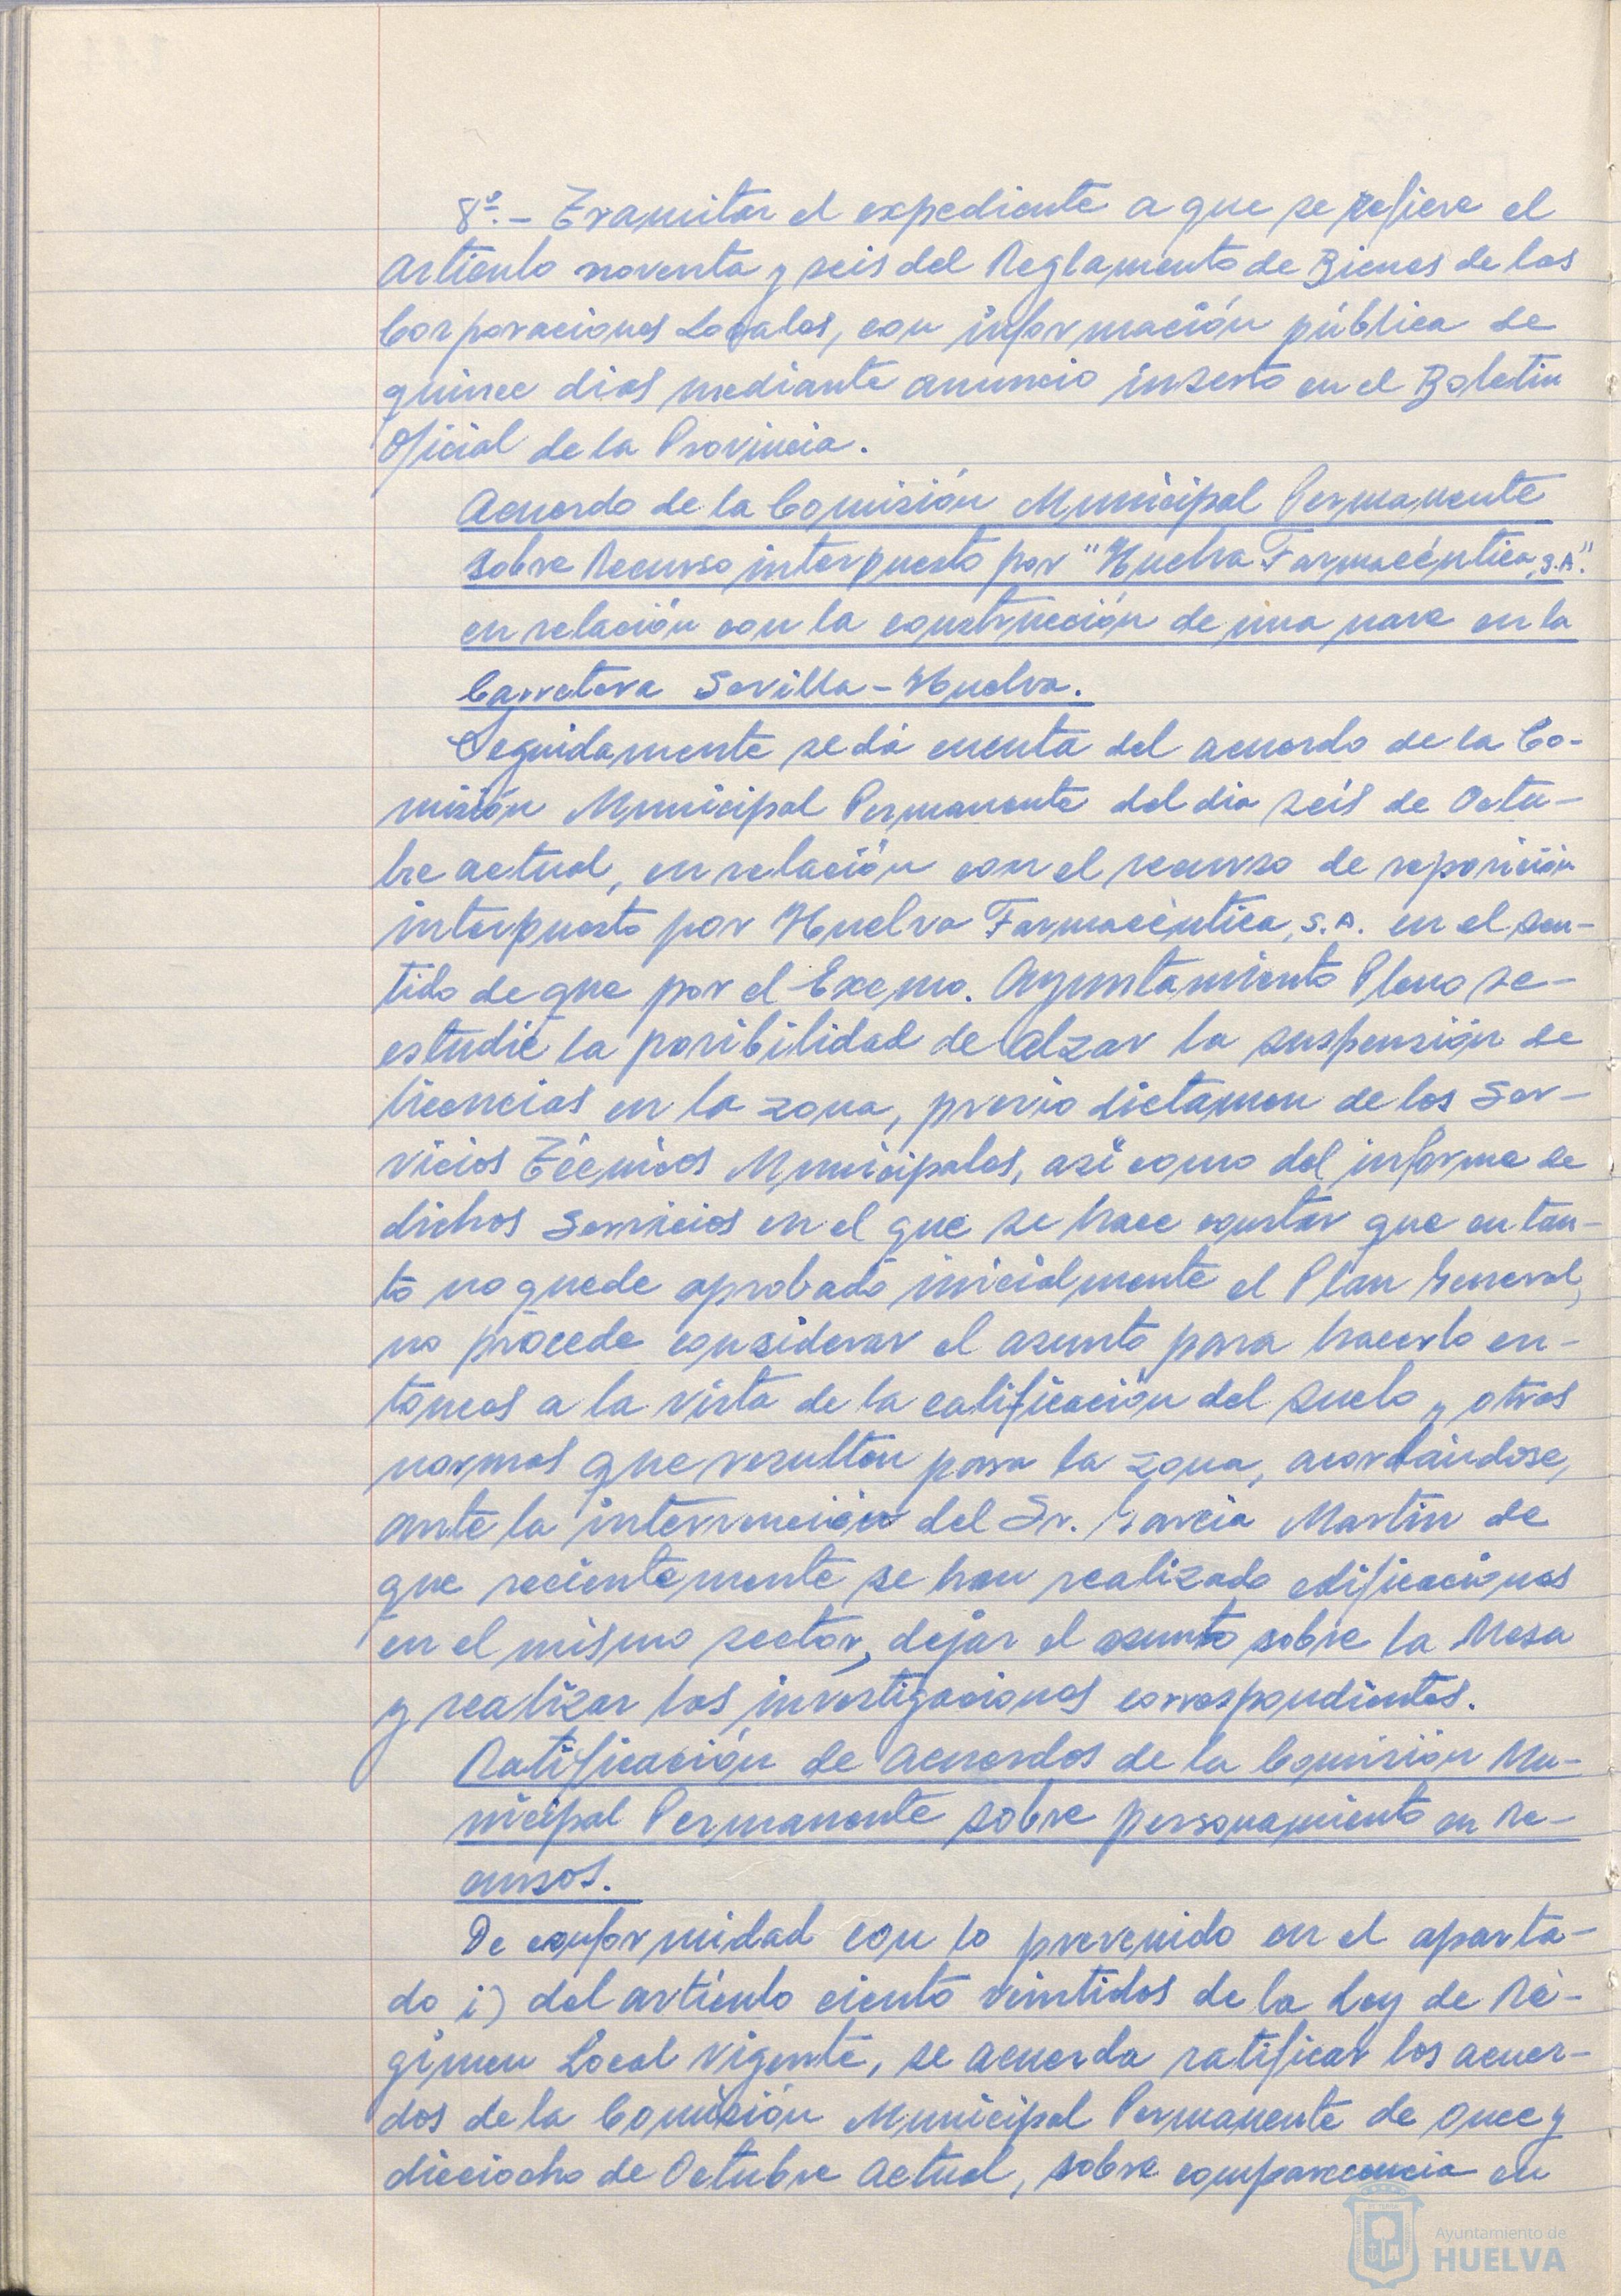 8º.- Tramitar el expediente a que se refiere el
artículo noventa y seis del Reglamento de Bienes de las
Corporaciones Locales, con información pública de
quince dias mediante anuncio inserto en el Boletin
Oficial de la Provincia.
Acuerdo de la Comisión Municipal Permanente
sobre Recurso interpuesto por "Huelva Farmacéutica, S.A."
en relación con la construcción de una nave en la
Carretera Sevilla-Huelva.
Seguidamente se dá cuenta del acuerdo de la Co-
misión Municipal Permanente del dia seis de Octu-
bre actual, en relación con el recurso de reposición
interpuesto por Huelva Farmacéutica, S.A. en el sen-
tido de que por el Excmo. Ayuntamiento Pleno se
estudie la posibilidad de alzar la suspensión de
licencias en la zona, previo dictamen de los Ser-
vicios Técnicos Municipales, así como del informe de
dichos Servicios en el que se hace constar que en tan-
to no quede aprobado inicialmente el Plan General,
no procede considerar el asunto para hacerlo en-
tonces a la vista de la calificación del suelo y otras
normas que resulten para la zona, acordándose,
ante la intervención del Sr. García Martín de
que recientemente se han realizado edificaciones
en el mismo sector, dejar el asunto sobre la Mesa
y realizar las investigaciones correspondientes.
Ratificación de acuerdos de la Comisión Mu-
nicipal Permanente sobre personamiento en Re-
cursos.
De conformidad con lo prevenido en el aparta-
do i) del artículo ciento veintidos de la Ley de Ré-
gimen Local vigente, se acuerda ratificar los acuer-
dos de la Comisión Municipal Permanente de once y
dieciocho de Octubre actual, sobre comparecencia en
Ayuntamiento de
HUELVA